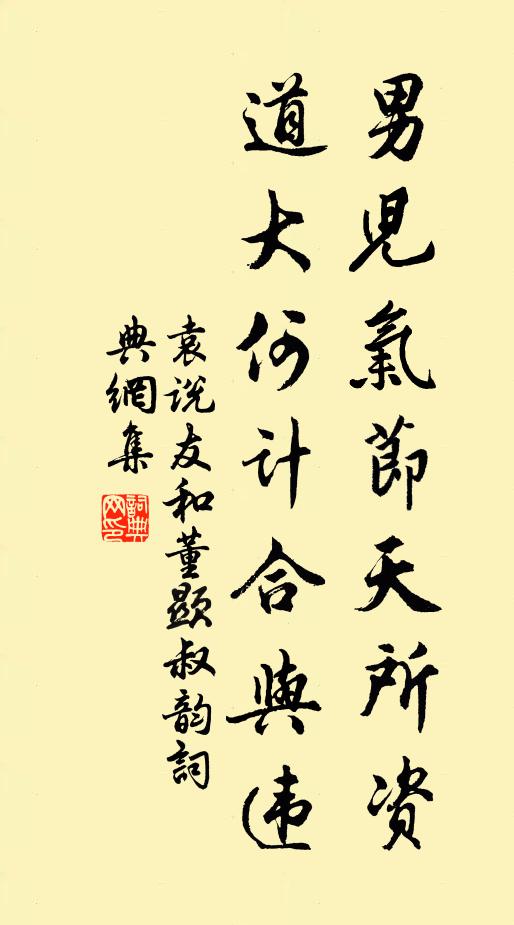 男兒氣節天所资
道大何计合與违
袁说友和董顯叔韵詞
典網集
詞典网印